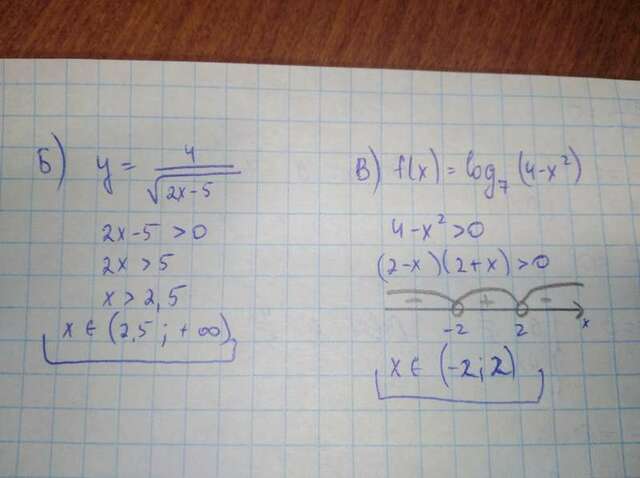 Б) y = 4/√(2x-5)
2x-5 >0
2x >5
x > 2,5
x ∈ (2,5 ; +∞)
В) f(x) = log₇ (4-x²)
4-x² >0
(2-x)(2+x) >0
- + -
-2 2 x
x ∈ (-2; 2)